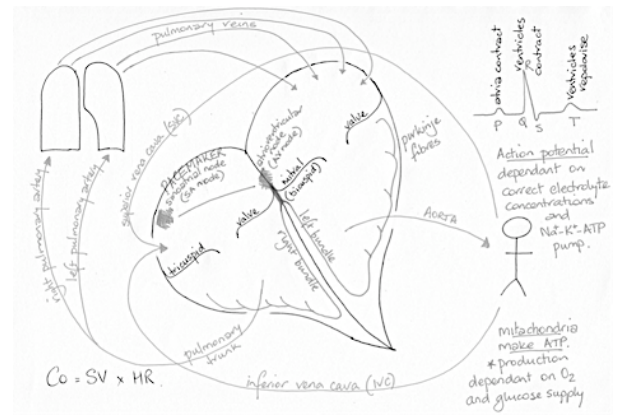 pulmonary veins
right pulmonary artery
left pulmonary artery
superior vena cava (SVC)
PACEMAKER
sinoatrial node
(SA node)
atrioventricular
node
(AV node)
valve
mitral
(bicuspid)
purkinje
fibres
valve
tricuspid
left bundle
right bundle
AORTA
pulmonary
trunk
inferior vena cava (IVC)
CO = SV x HR.
atria contract
ventricles
contract
ventricles
repolarise
P Q S T
Action potential
dependant on
correct electrolyte
concentrations
and
Na+-K+-ATP
pump.
mitochondria
make ATP.
* production
dependant on O2
and glucose supply